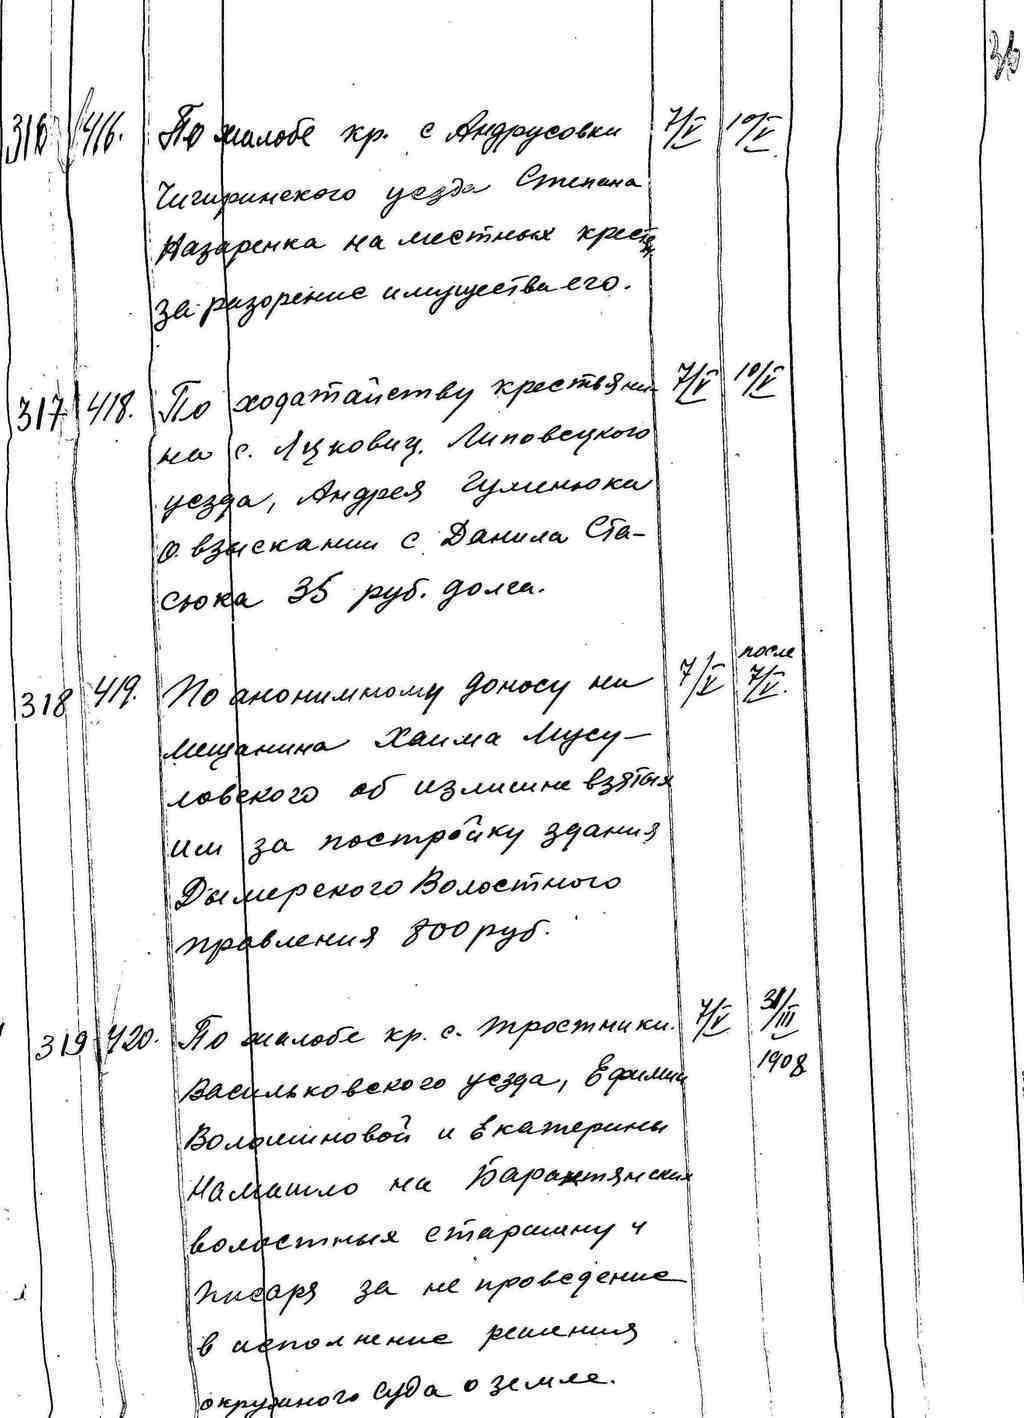 36
316 416. По жалобе кр. с Андрусовки 7/V 10/V
Чигиринского уезда Степана
Назаренка на местных крест.
за разорение имущества его.
317 418. По ходатайству крестьяни- 7/V 10/V
на с. Яцковиц. Липовецкого
уезда, Андрея Гуменюка
о взыскании с Данила Ста-
сюка 35 руб. долга.
318 419. По анонимному доносу на 7/V после 7/V.
мещанина Хаима Мусу-
ловского об излишне взятых
им за постройку здания
Дымерского Волостного
правления 800 руб.
319 420. По жалобе кр. с. Тростинки. 7/V 31/III 1908
Васильковского уезда, Ефимии
Волошиновой и Екатерины
на Барахтянских
волостных старшину и
писаря за не проведение
в исполнение решения
окружного суда о земле.